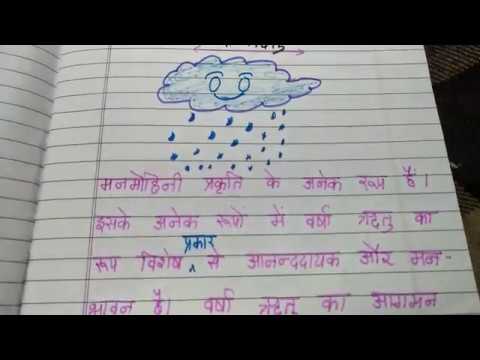 मनमोहिनी प्रकृति के अनेक रूप हैं।
इसके अनेक रूपों में वर्षा ऋतु का
प्रकार
रूप विशेष ^ से आनन्ददायक और मन-
भावन है। वर्षा ऋतु का आगमन